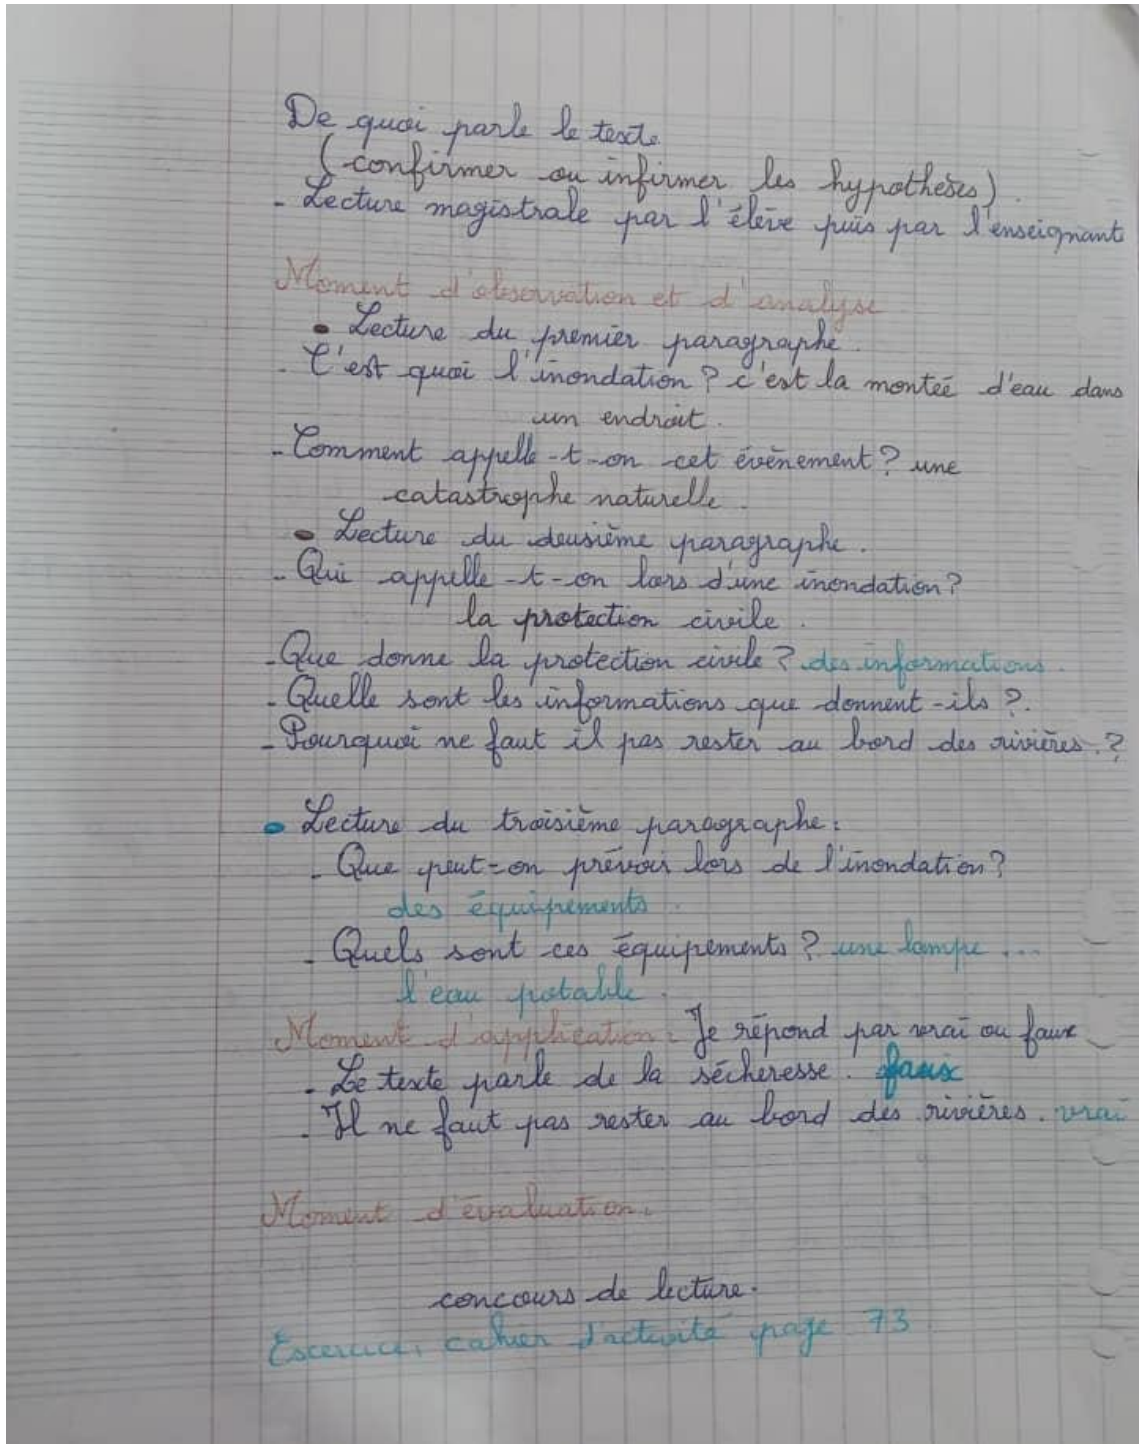 De quoi parle le texte.
(confirmer ou infirmer les hypothèses).
- Lecture magistrale par l'élève puis par l'enseignant
Moment d'observation et d'analyse
• Lecture du premier paragraphe.
- C'est quoi l'inondation ? c'est la montée d'eau dans
un endroit.
- Comment appelle-t-on cet évènement ? une
catastrophe naturelle.
• Lecture du deusième paragraphe.
- Qui appelle-t-on lors d'une inondation ?
la protection civile.
- Que donne la protection civile ? des informations.
- Quelle sont les informations que donnent-ils ?.
- Pourquoi ne faut il pas rester au bord des rivières.?
• Lecture du troisième paragraphe :
- Que peut-on prévoir lors de l'inondation ?
des équipements.
- Quels sont ces équipements ? une lampe ...
l'eau potable.
Moment d'application : Je répond par vrai ou faux
- Le texte parle de la sécheresse. faux
- Il ne faut pas rester au bord des rivières. vrai
Moment d'évaluation.
concours de lecture.
Exercice, cahier d'activité page 73